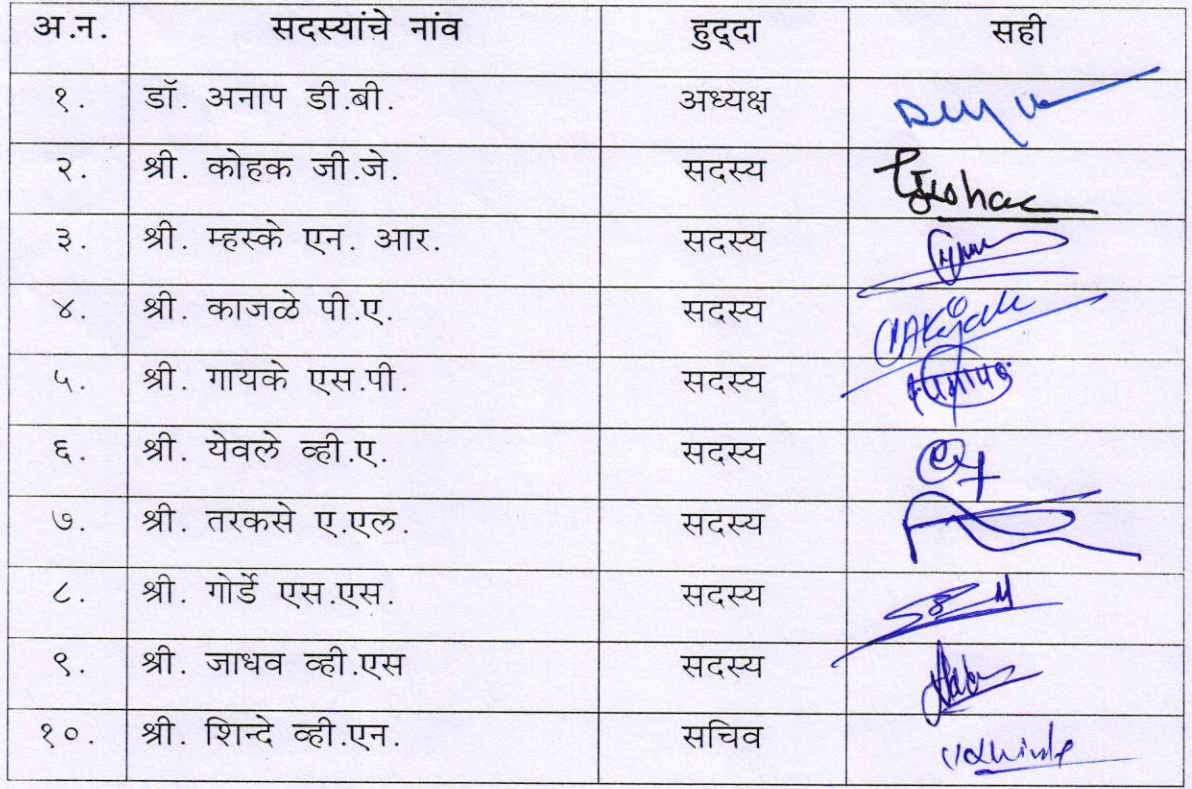 अ.न. सदस्यांचे नांव हुद्दा सही
१. डॉ. अनाप डी.बी. अध्यक्ष
२. श्री. कोहक जी.जे. सदस्य
३. श्री. म्हस्के एन. आर. सदस्य
४. श्री. काजळे पी.ए. सदस्य
५. श्री. गायके एस.पी. सदस्य
६. श्री. येवले व्ही.ए. सदस्य
७. श्री. तरकसे ए.एल. सदस्य
८. श्री. गोर्डे एस.एस. सदस्य
९. श्री. जाधव व्ही.एस सदस्य
१०. श्री. शिन्दे व्ही.एन. सचिव